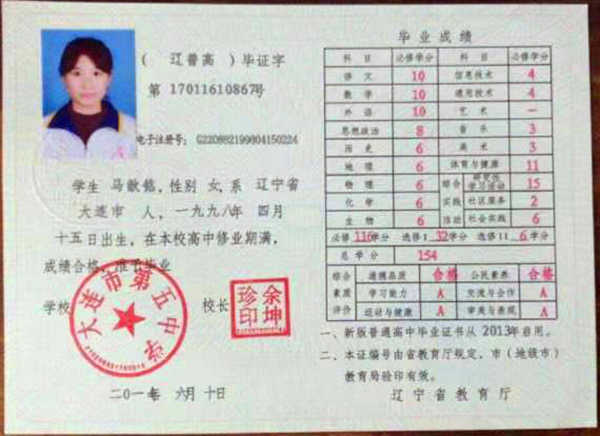 （ 辽普高 ）毕证字
第 17011610867号
电子注册号：G220882199804150224
学生 马歆铭，性别 女，系 辽宁省
大连市 人，一九九八年 四月
十五日出生，在本校高中修业期满，
成绩合格，准予毕业
学校
大连市第五中学
校长
余坤珍印
二〇一七年 六月十日
毕业成绩
科目 必修学分 科目 必修学分
语文 10 信息技术 4
数学 10 通用技术 4
外语 10 艺术 —
思想政治 8 音乐 3
历史 6 美术 3
地理 6 体育与健康 11
物理 6 综合实践活动 研究性学习活动 15
化学 6 社区服务 2
生物 6 社会实践 6
必修 116学分 选修I 32学分 选修II 6学分
总学分 154
综合素质评价 道德品质 合格 公民素养 合格
学习能力 A 交流与合作 A
运动与健康 A 审美与表现 A
一、新版普通高中毕业证书从2013年启用。
二、本证编号由省教育厅规定，市（地级市）
教育局验印有效。
辽宁省教育厅